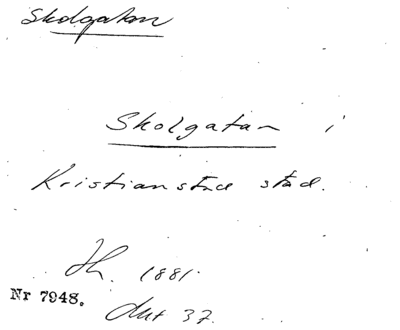 Skolgatan
Skolgatan i
Kristianstad stad.
Th. 1881.
Nr 7948.
Akt 37.